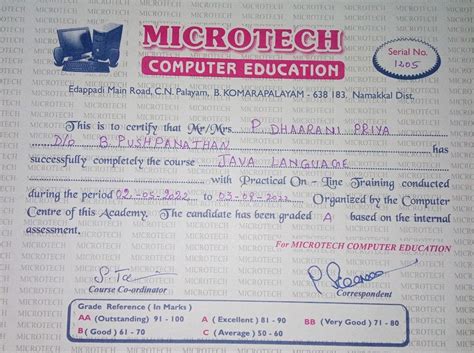 MICROTECH
COMPUTER EDUCATION
Serial No.
1205
Edappadi Main Road, C.N. Palayam, B. KOMARAPALAYAM - 638 183. Namakkal Dist.
This is to certify that Mr/Mrs P. DHAARANI PRIYA
D/o B. PUSHPANATHAN has
successfully completely the course JAVA LANGUAGE
with Practical On - Line Training conducted
during the period 02-05-2022 to 03-08-2022 Organized by the Computer
Centre of this Academy. The candidate has been graded A based on the internal
assessment.
For MICROTECH COMPUTER EDUCATION
Course Co-ordinator
Correspondent
Grade Reference ( In Marks )
AA (Outstanding) 91 - 100 A ( Excellent ) 81 - 90 BB (Very Good ) 71 - 80
B ( Good ) 61 - 70 C ( Average ) 50 - 60